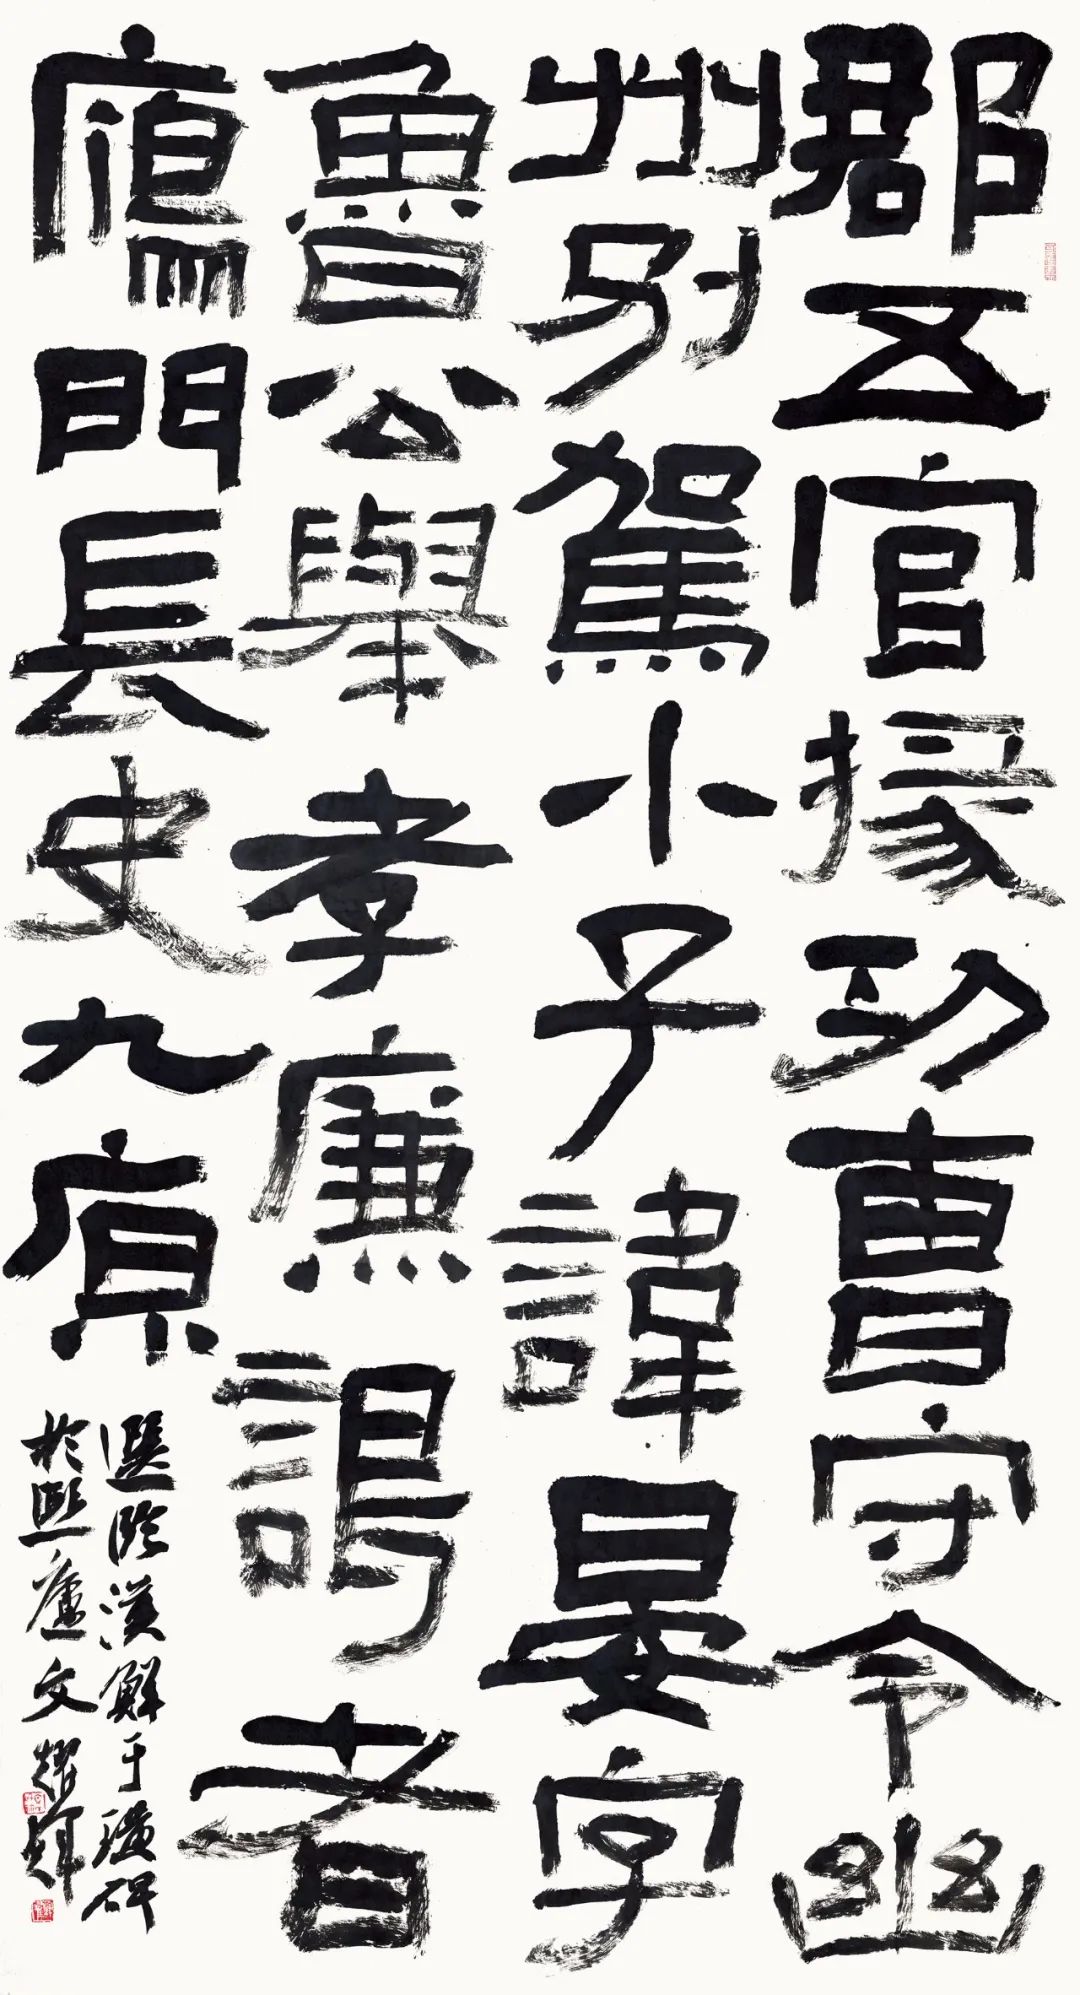 郡五官掾功曹守令幽
州別駕小子諱晏字
魯公舉孝廉謁者
鴈門長史九原
選臨漢鮮于璜碑
於廬文耀輝